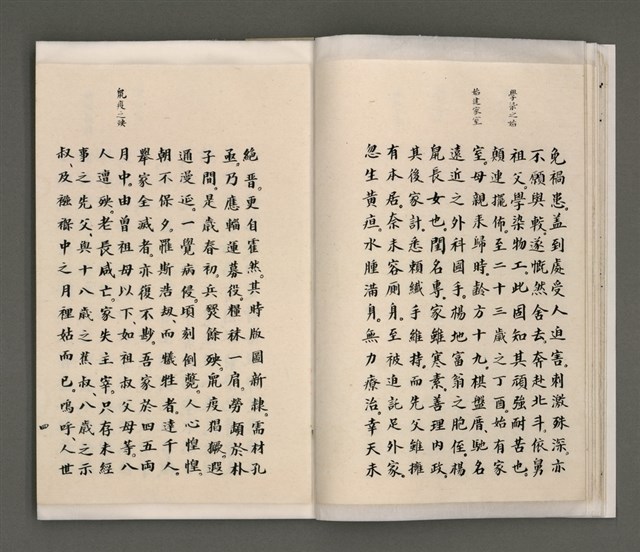 學染之始
始建家室
免禍患。蓋到處受人迫害。刺激殊深。亦
不願與較。遂慨然舍去。奔赴北斗。依舅
祖父。學染物工。此固知其頑強耐苦也。
顛連擺佈。至二十三歲之丁酉。始有家
室。母親來歸時。齡方十九。棋盤厝馳名
遠近之外科國手。楊地富翁之胞侄。楊
鼠長女也。閨名專。家雖寒素。善理內政。
其後家計。悉賴纖手維持。而先父雖擁
有本居。奈未容廁身。至被迫託足外家。
忽生黃疸。水腫滿身。無力療治。幸天未
鼠疫之悽
絕晋。更自霍然。其時版圖新隸。需材孔
亟。乃應幅蓮募役。糧秣一肩。勞頗於朴
子間。是歲春初。兵燹餘殃。鼠疫猖獗。遐
通漫延。一覺病侵。頃刻倒斃。人心惶惶。
朝不保夕。羅斯浩劫。而犧牲者。達千人。
舉家全滅者。亦復不尟。吾家於四五兩
月中。由曾祖母以下。如祖叔父母等。八
人遭殃。老長咸亡。家失主宰。只存未經
事之先父。與十八歲之蕉叔、八歲之示
叔、及襁褓中之月裡姑而已。嗚呼、人世
四